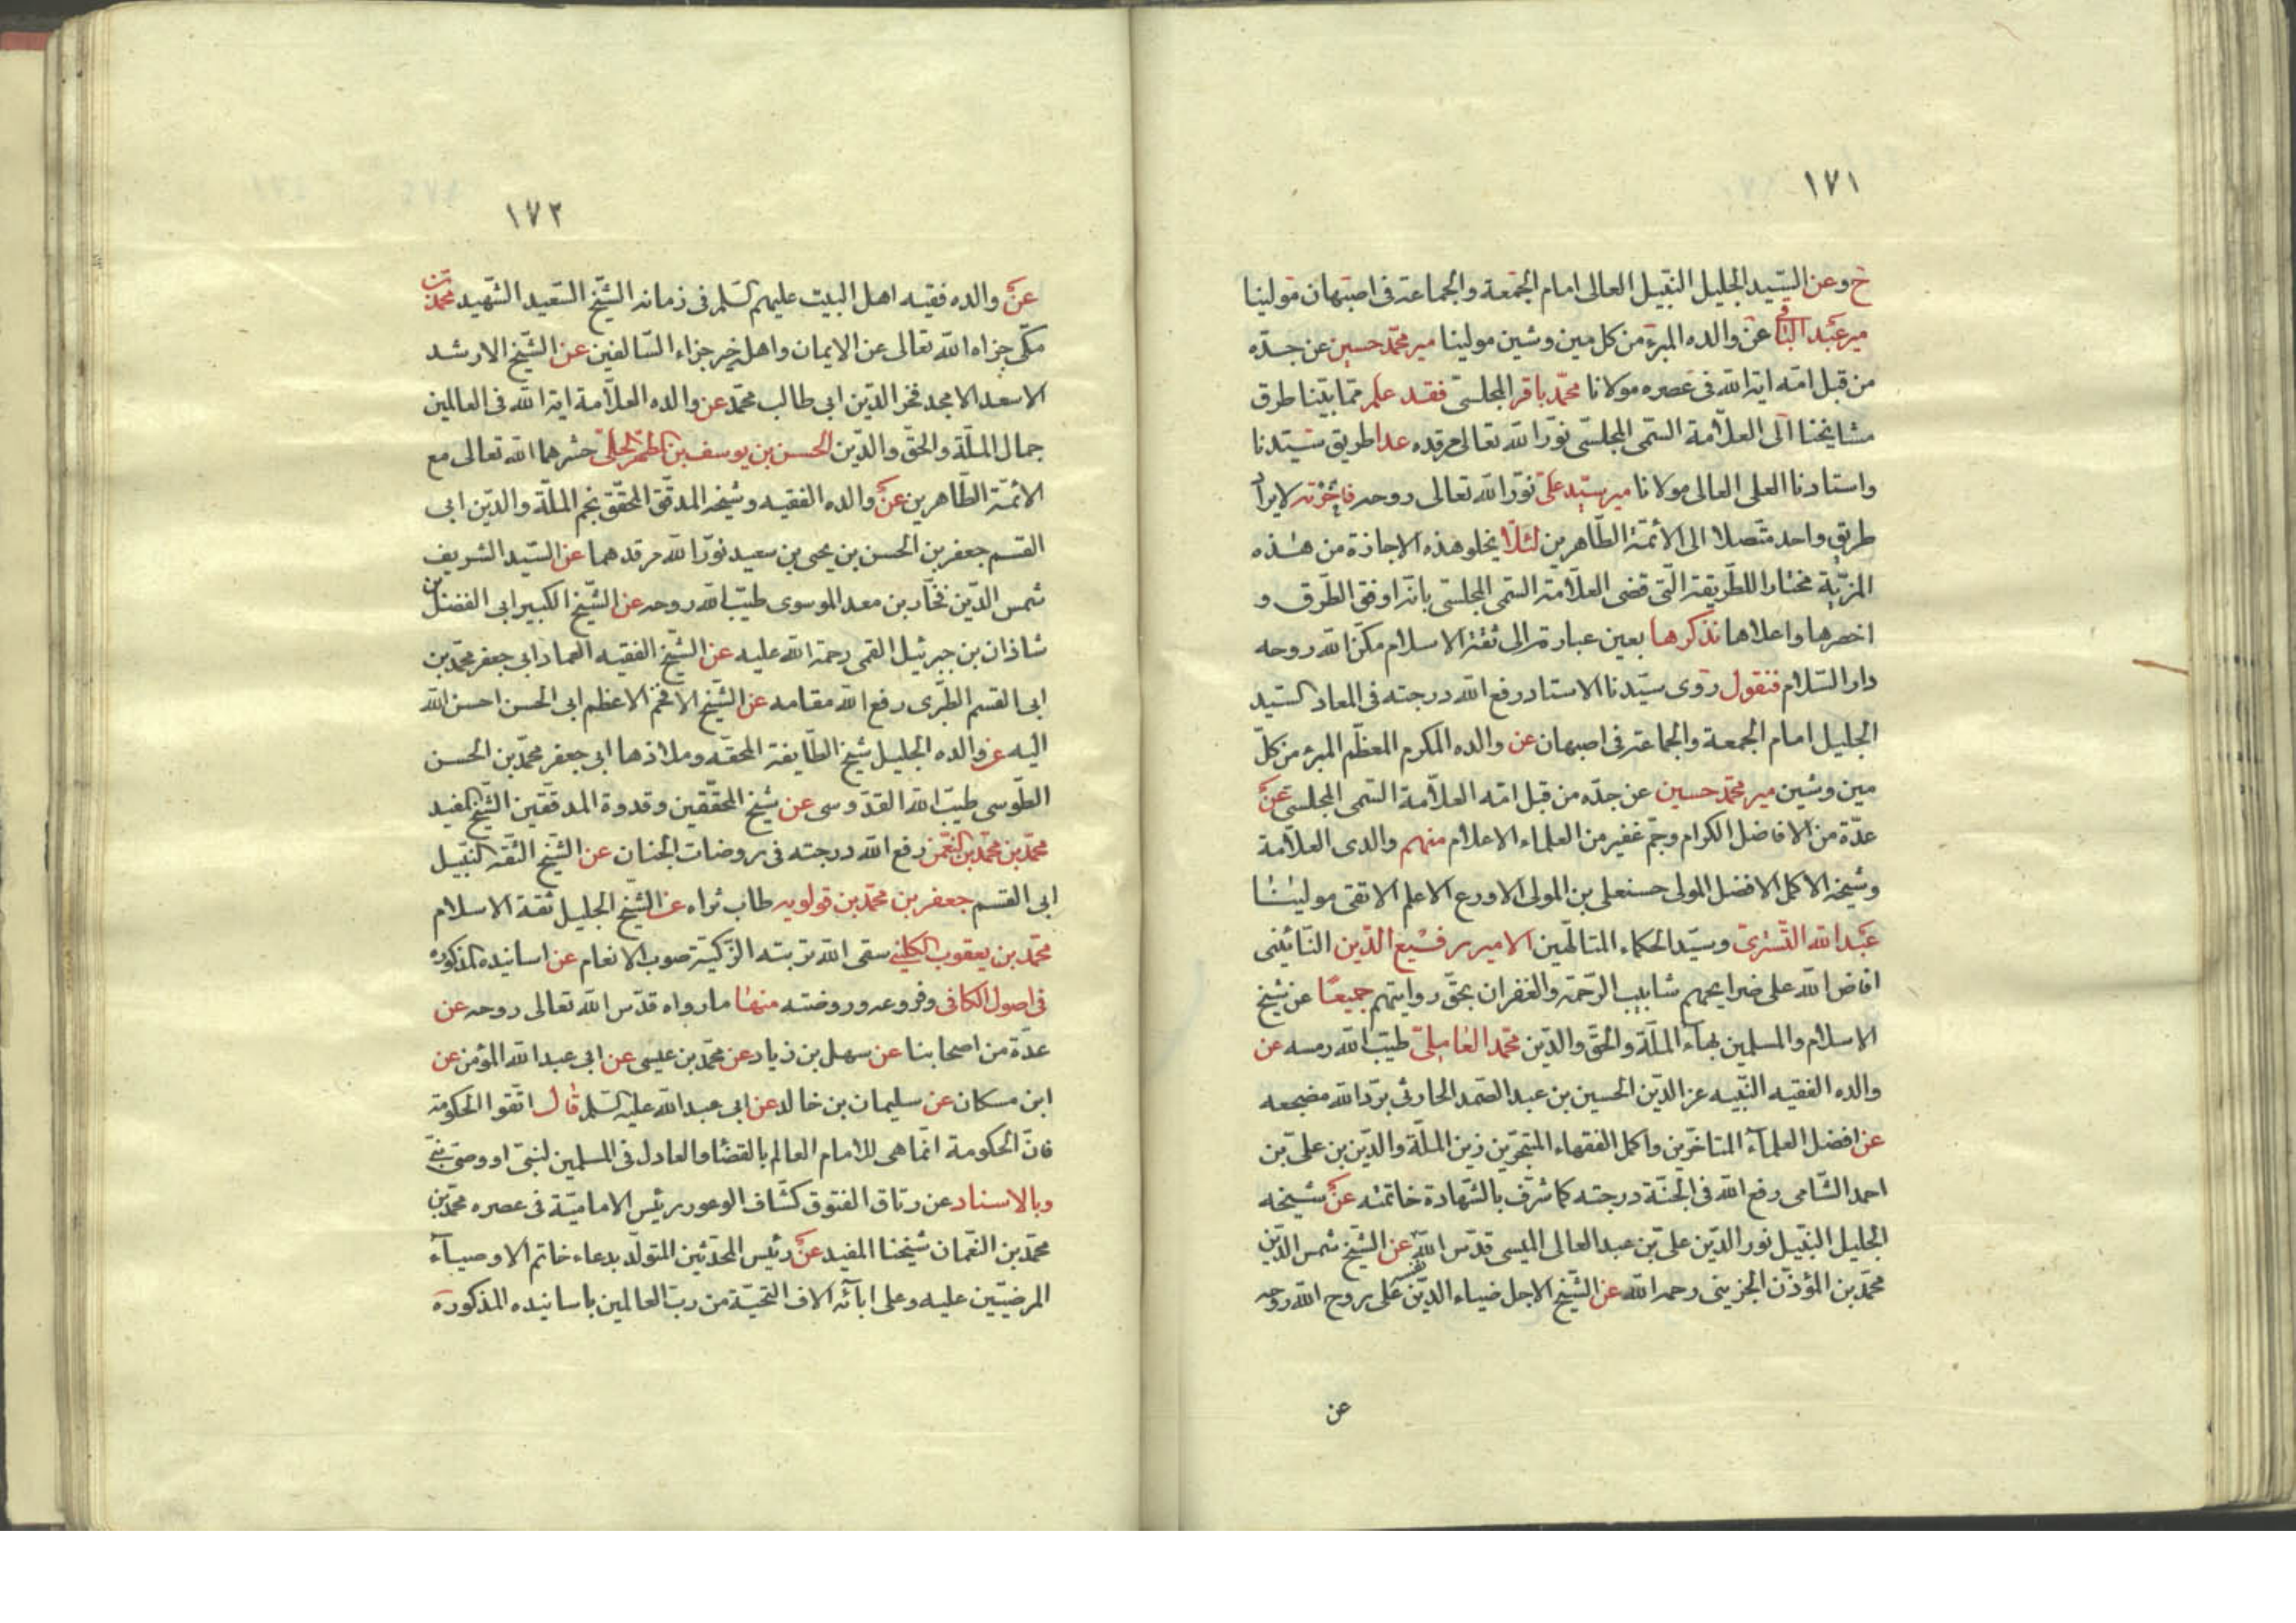 ١٧١
خ وعن السّيد الجليل النّبيل العالى امام الجمعة والجماعة فى اصبهان مولينا
مير عبد الباقى عن والده المبرّء من كل مين وشين مولينا مير محمّد حسين عن جدّه
من قبل امّه اية الله فى عصره مولانا محمّد باقر المجلسى فقد علم ممّا بيّنا طرق
مشايخنا الى العلّامة السّمى المجلسى نوّر الله تعالى مرقده عدا طريق سيّدنا
واستادنا العلى العالى مولانا مير سيّد على نوّر الله تعالى روحه لايراد
طريق واحد متّصلا الى الأئمّة الطّاهرين لئلّا يخلو هذه الاجازة من هذه
المزيّة مختارا للطّريقة الّتى قضى العلّامة السّمى المجلسى بانّه اوفق الطّرق و
اخصرها واعلاها نذكرها بعين عبارته الى ثقة الاسلام مكّن الله روحه
دار السّلام فنقول روى سيّدنا الاستاد رفع الله درجته فى المعاد السّيد
الجليل امام الجمعة والجماعة فى اصبهان عن والده المكرم المعظّم المبرّء من كلّ
مين وشين مير محمّد حسين عن جدّه من قبل امّه العلّامة السّمى المجلسى عن
عدّة من الافاضل الكرام وجمّ غفير من العلماء الاعلام منهم والدى العلّامة
وشيخه الاكمل الافضل المولى حسنعلى بن المولى الاورع الاعلم الاتقى مولينا
عبد الله التّسترى وسيّد الحكماء المتالّهين الامير رفيع الدّين النّائينى
افاض الله على ضرايحهم شابيب الرّحمة والغفران بحقّ روايتهم جميعًا عن شيخ
الاسلام والمسلمين بهاء الملّة والحقّ والدّين محمّد العاملى طيّب الله رمسه عن
والده الفقيه النّبيه عز الدّين الحسين بن عبد الصّمد الحارثى برّد الله مضجعه
عن افضل العلماء المتاخّرين واكمل الفقهاء المتبحّرين زين الملّة والدّين بن على بن
احمد الشّامى رفع الله فى الجنّة درجته كما شرّف بالشّهادة خاتمته عن شيخه
الجليل النّبيل نور الدّين على بن عبد العالى الميسى قدّس الله نفسه عن الشّيخ شمس الدّين
محمّد بن المؤذّن الجزينى رحمه الله عن الشّيخ الاجل ضياء الدّين على روح الله روحه
عن
١٧٢
عن والده فقيه اهل البيت عليهم السّلم فى زمانه الشّيخ السّعيد الشّهيد محمّد بن
مكّى جزاه الله تعالى عن الايمان واهله خير جزاء السّالفين عن الشّيخ الارشد
الاسعد الامجد فخر الدّين ابى طالب محمّد عن والده العلّامة اية الله فى العالمين
جمال الملّة والحقّ والدّين الحسن بن يوسف بن المطهّر الحلّى حشرهما الله تعالى مع
الائمّة الطّاهرين عن والده الفقيه وشيخه المدقّق المحقّق نجم الملّة والدّين ابى
القسم جعفر بن الحسن بن يحيى بن سعيد نوّر الله مرقدهما عن السّيد الشريف
شمس الدّين فخّار بن معد الموسوى طيّب الله روحه عن الشّيخ الكبير ابى الفضل بن
شاذان بن جبرئيل القمى رحمة الله عليه عن الشّيخ الفقيه العماد ابى جعفر محمّد بن
ابى القسم الطّبرى رفع الله مقامه عن الشّيخ الافخم الاعظم ابى الحسن احسن الله
اليه عن والده الجليل شيخ الطّايفة المحقّه وملاذها ابى جعفر محمّد بن الحسن
الطّوسى طيّب الله القدّوسى عن شيخ المحقّقين وقدوة المدقّقين الشّيخ المفيد
محمّد بن محمّد بن النّعمن رفع الله درجته فى روضات الجنان عن الشّيخ الثّقه النّبيل
ابى القسم جعفر بن محمّد بن قولويه طاب ثراه عن الشّيخ الجليل ثقة الاسلام
محمّد بن يعقوب الكلينى سقى الله تربته الزّكيّة صوب الانعام عن اسانيده المذكوره
فى اصول الكافى وفروعه وروضته منها ما رواه قدّس الله تعالى روحه عن
عدّة من اصحابنا عن سهل بن زياد عن محمّد بن عيسى عن ابى عبد الله المؤمن عن
ابن مسكان عن سليمان بن خالد عن ابى عبد الله عليه السّلم قال اتّقوا الحكومة
فانّ الحكومة انّما هى للامام العالم بالقضا والعادل فى المسلمين لنبىّ او وصىّ نبىّ
وبالاسناد عن رتاق الفتوق كشّاف الوعور رئيس الاماميّة فى عصره محمّد بن
محمّد بن النّعمان شيخنا المفيد عن رئيس المحدّثين المتولّد بدعاء خاتم الاوصياء
المرضيّين عليه وعلى ابآئه الاف التّحيّة من ربّ العالمين باسانيده المذكورة